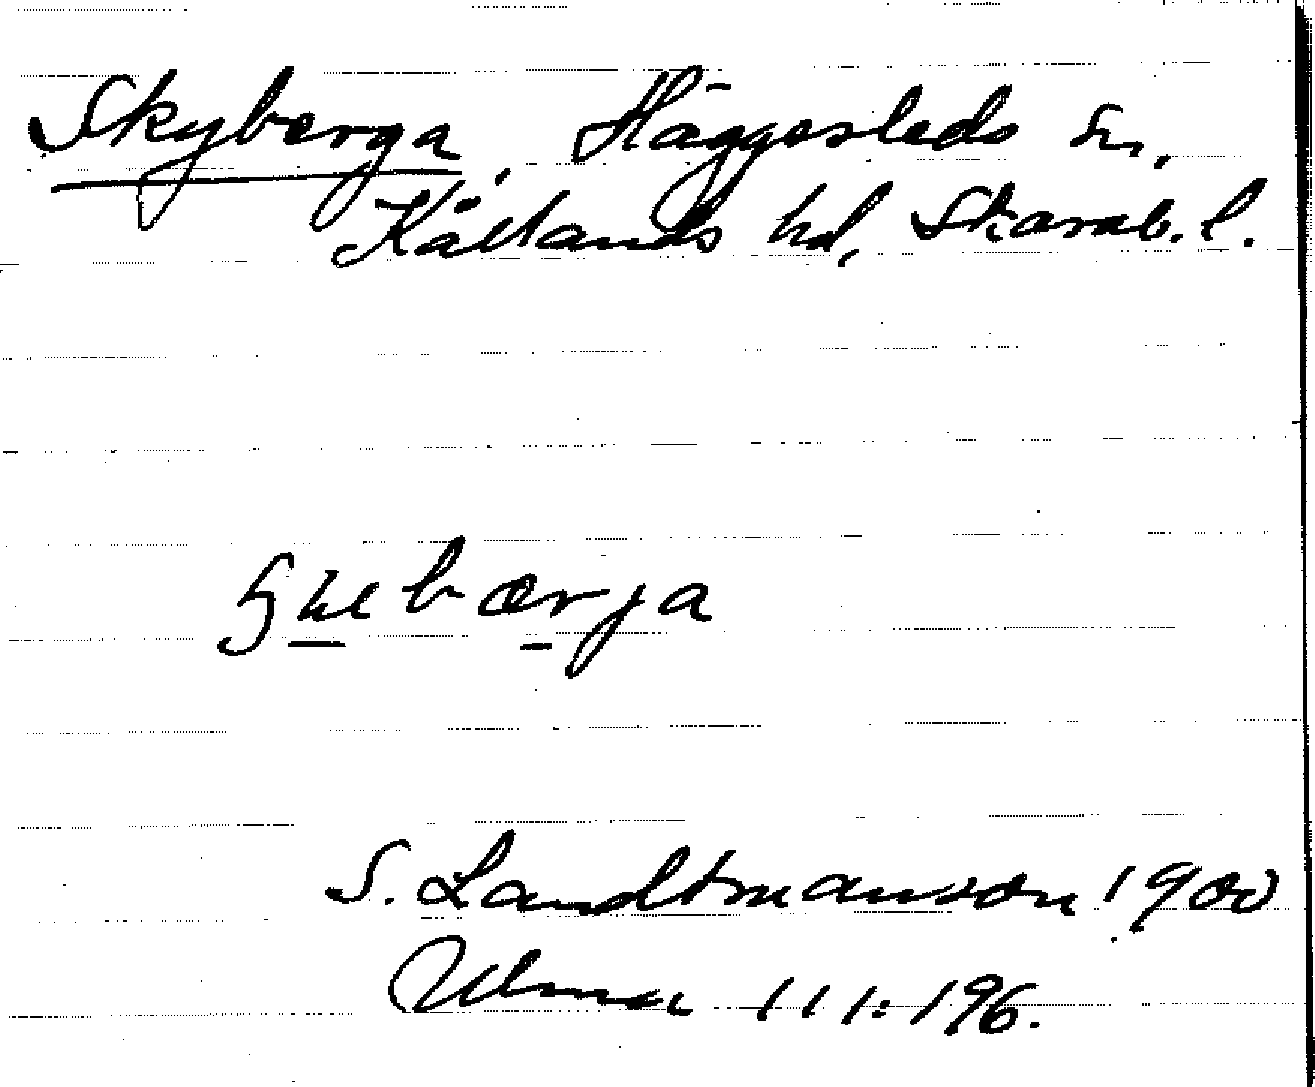 Skyberga, Häggesleds sn,
Kållands hd, Skarab. l.
bærja
S. Landtmanson 1900
Ulma 111:196.